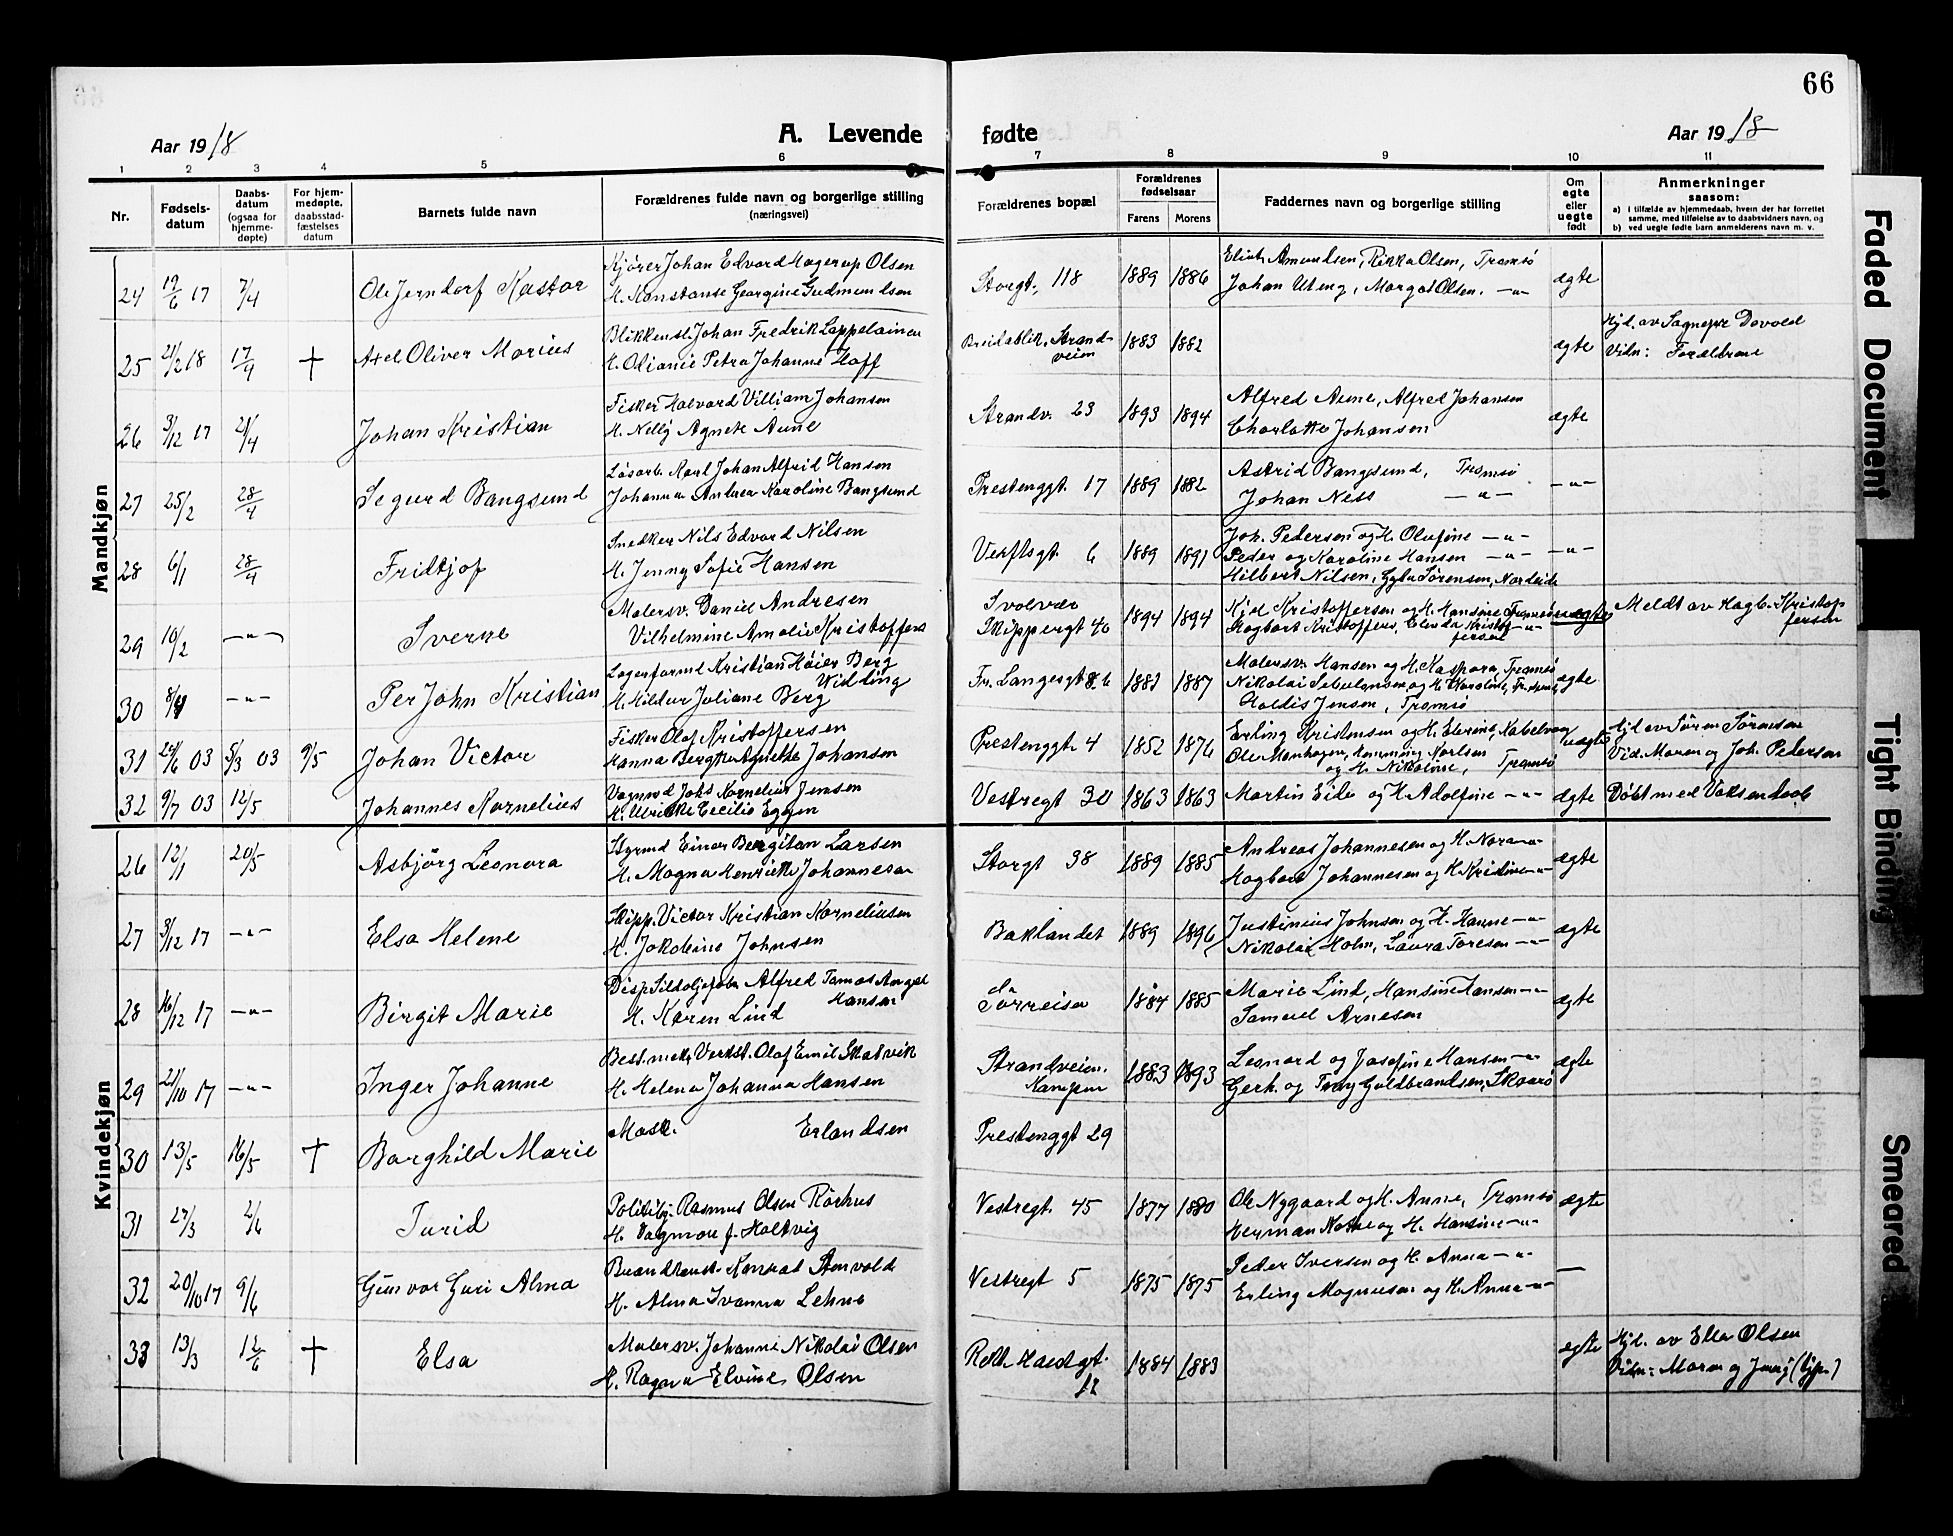 66
Aar 1918
A. Levende fødte
Aar 1918
1 2 3 4 5 6 7 8 9 10 11
Nr.
Fødsels-
datum
Daabs-
datum
(ogsaa for
hjemme-
døpte)
For hjem-
medøpte,
daabsstad-
fæstelses
datum
Barnets fulde navn
Forældrenes fulde navn og borgerlige stilling
(næringsvei)
Forældrenes bopæl
Forældrenes
fødselsaar
Farens Morens
Faddernes navn og borgerlige stilling
Om
egte
eller
uegte
født
Anmerkninger
saasom:
a) i tilfælde av hjemmedaab, hvem der har forrettet
samme, med tilføielse av to daabsvidners navn, og
b) ved uegte fødte barn anmelderens navn m. v.
Mandkjøn
24 19/6 17 7/4 Ole Jerndorf Kastor
Kjører Johan Edvard Hagerup Olsen
H. Konstanse Georgine Gudmundsen
Storgt. 118 1889 1886
Amundsen, Rikka Olsen, Tromsø
Johan Uteng, Margot Olsen. -"-
ægte
25 21/2 18 17/4 † Axel Oliver Marius
Blikkensl. Johan Fredrik Lappalainen
H. Petra Johanne Hoff
Breidablik, Strand-
veien
1883 1882
ægte
Hjd. av Sognepr Devold
Vidn: Forældrene
26 3/12 17 21/4 Johan Kristian
Fisker Halvard Villiam Johansen
H. Nelly Agnete Aune
Strandv. 23 1893 1894
Alfred Aune, Alfred Johansen
Charlotte Johansen
ægte
27 25/2 28/4 Segurd Bangsund
Løsarb. Karl Johan Alfrid Hansen
Johanna Andrea Karoline Bangsund
Prestenggt. 17 1889 1882
Astrid Bangsund, Tromsø
Johan Ness -"-
-"-
28 6/1 28/4 Fridtjof
Snedker Nils Edvard Nilsen
H. Jenny Sofie Hansen
Verftsgt. 6 1889 1891
Joh. Pedersen og H. Olufine -"-
Peder og Karoline Hansen -"-
Hilbert Nilsen, Sørensen,
-"-
29 10/2 -"- Sverre
Malersv. Daniel Andresen
Vilhelmine Amalie Kristoffers
Svolvær
Skippergt 40
1894 1894
Kristoffersen og H. Hansine Tromsø
Hagbart Kristoffers, Kristof
fersen -"-
uægte
Meldt av Hagb. Kristof
fersen
30 8/4 -"- Per John Kristian
Lagerformd Kristian Høier Berg
H. Hildur Juliane Berg
Fr. Langesgt 1887
Malersv. Hansen og H. Kaspara, Tromsø
Nikolai og H. Karoline,
Haldis Jensen, Tromsø
ægte
31 24/6 03 5/3 03 9/5 Johan Victor
Fisker Olaf Kristoffersen
Hanna Agnethe Johansen
Prestenggt. 4 1852 1876
Erling Kristensen og H. Kabelvaag
Ole Henning Karlsen
og H. Nikoline, Tromsø
uægte
Hjd av Søren Sørensen
Vid. Moren og Joh. Petersen
32 9/7 03 12/5 Johannes Kornelius
Vognmd Johs Kornelius Jensen
H. Ulrikke Cecilie Eggen
Vestregt 30 1863 1863
Martin Eide og H. Adolfine -"-
ægte
Døbt med Voksen daab
Kvindekjøn
26 12/1 20/5 Asbjørg Leonora
Styrmd Einar Bergiton Larsen
H. Magna Henrikke Johannesen
Storgt 38 1889 1885
Andreas Johannesen og H. Nora -"-
Hagbart Johannesen og H. Kristine -"-
ægte
27 3/12 17 -"- Elsa Helene
Skipp. Victor Kristian Korneliusen
H. Jakobine Johnsen
Baklandet 1889 1896
Justinius Johnsen og H. Hanne -"-
Nikolai Holm, Laura Toresen -"-
ægte
28 16/12 17 -"- Birgit Marie
Alfred Tomas August
Hansen
H. Karen Lind
Sørreisa
1884 1885
Marie Lind, Hansine Hansen -"-
Samuel Arnesen
ægte
29 21/10 17 -"- Inger Johanne
Best. mek. Verkst. Olaf Emil Skatvik
H. Helena Johanna Hansen
Strandveien.
1883 1893
Leonard og Josefine Hansen -"-
Gerh. og Tony Guldbrandsen, Skaarø
ægte
30 13/5 16/5 † Borghild Marie
Mask. Erlandsen
Prestenggt 29
31 27/3 2/6 Turid
Politibj. Rasmus Olsen Rørhus
H. Dagmar f. Holtvig
Vestregt. 45 1877 1880
Ole Nygaard og H. Anne, Tromsø
Herman og H. Hansine -"-
ægte
32 20/10 17 9/6 Gunvor Guri Alma
Brandkonst. Konrad Stenvold
H. Alma Ivanna Lehne
Vestregt 5 1875 1875
Peder Iversen og H. Anna -"-
Erling Magnusen og H. Anna -"-
33 13/3 12/6 † Elsa
Malersv. Johannes Nikolai Olsen
H. Ragna Elvine Olsen
12
1884 1883
ægte
Hjd. av Ella Olsen
Vidn: Moren og Jenny
Faded Document
Tight Binding
Smeared